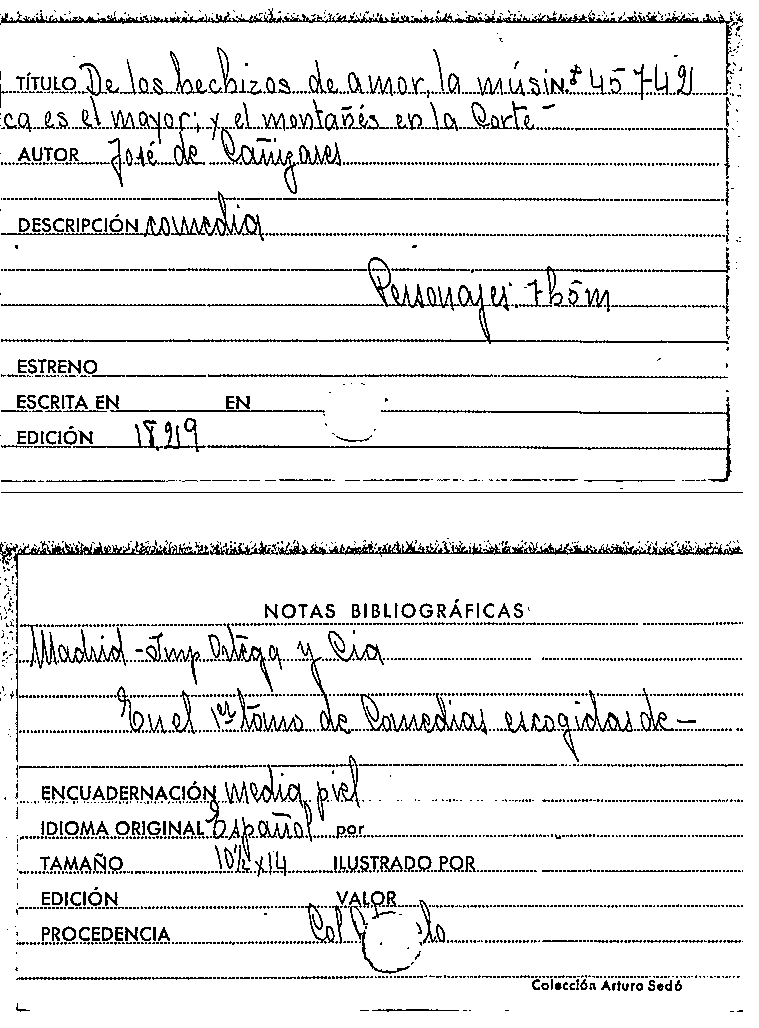 TÍTULO De los hechizos de amor, la músi n.º 45742
ca es el mayor; y el montañés en la Corte-
AUTOR José de Cañizares
DESCRIPCIÓN comedia
Personajes: 7h5m
ESTRENO
ESCRITA EN EN
EDICIÓN 1829
NOTAS BIBLIOGRÁFICAS
Madrid-Imp Ortega y Cia
En el 1er tomo de Comedias escogidas de-
ENCUADERNACIÓN media piel
IDIOMA ORIGINAL Español por
TAMAÑO 10½ x 14 ILUSTRADO POR
EDICIÓN VALOR
PROCEDENCIA Col
Colección Arturo Sedó